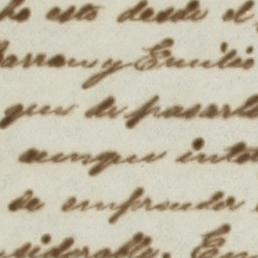 ho esto desde el
Barran y Emilio
que de pasarle
aunque inte
de emprender
nsiderable. Em